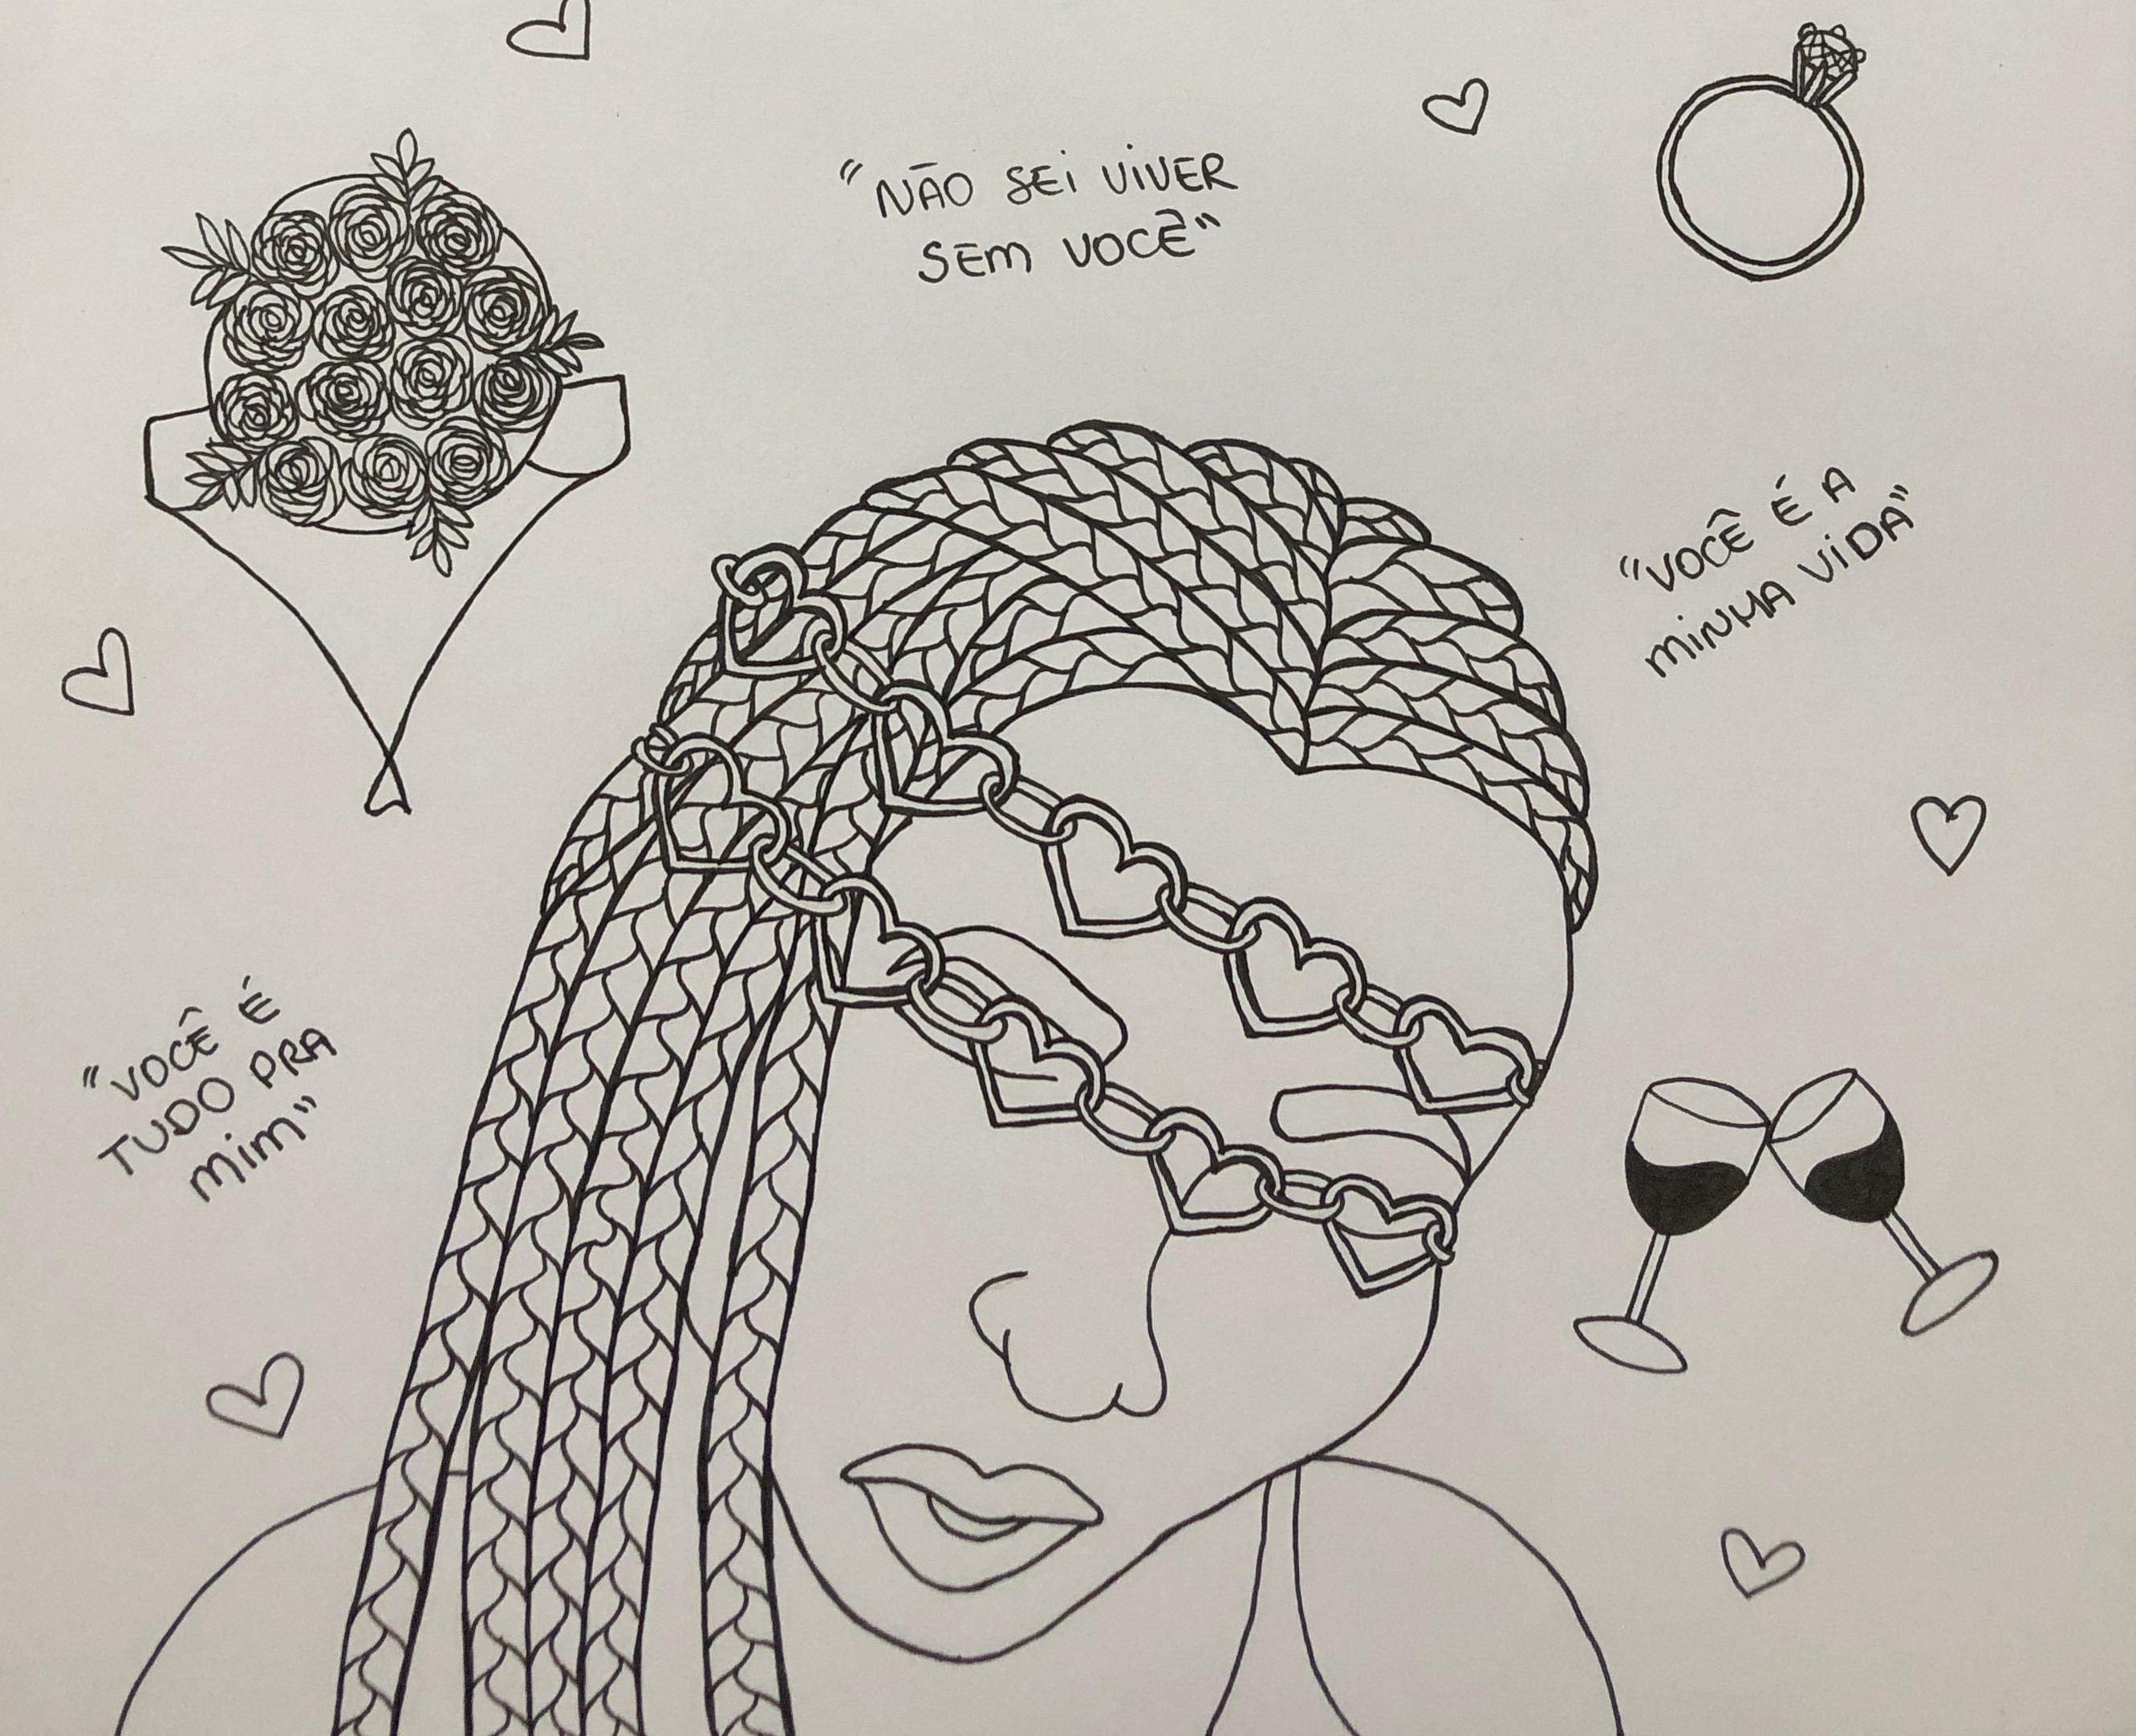 "NÃO SEI VIVER
SEM VOCÊ"
"VOCÊ É A
MINHA VIDA"
"VOCÊ É
TUDO PRA
MIM"